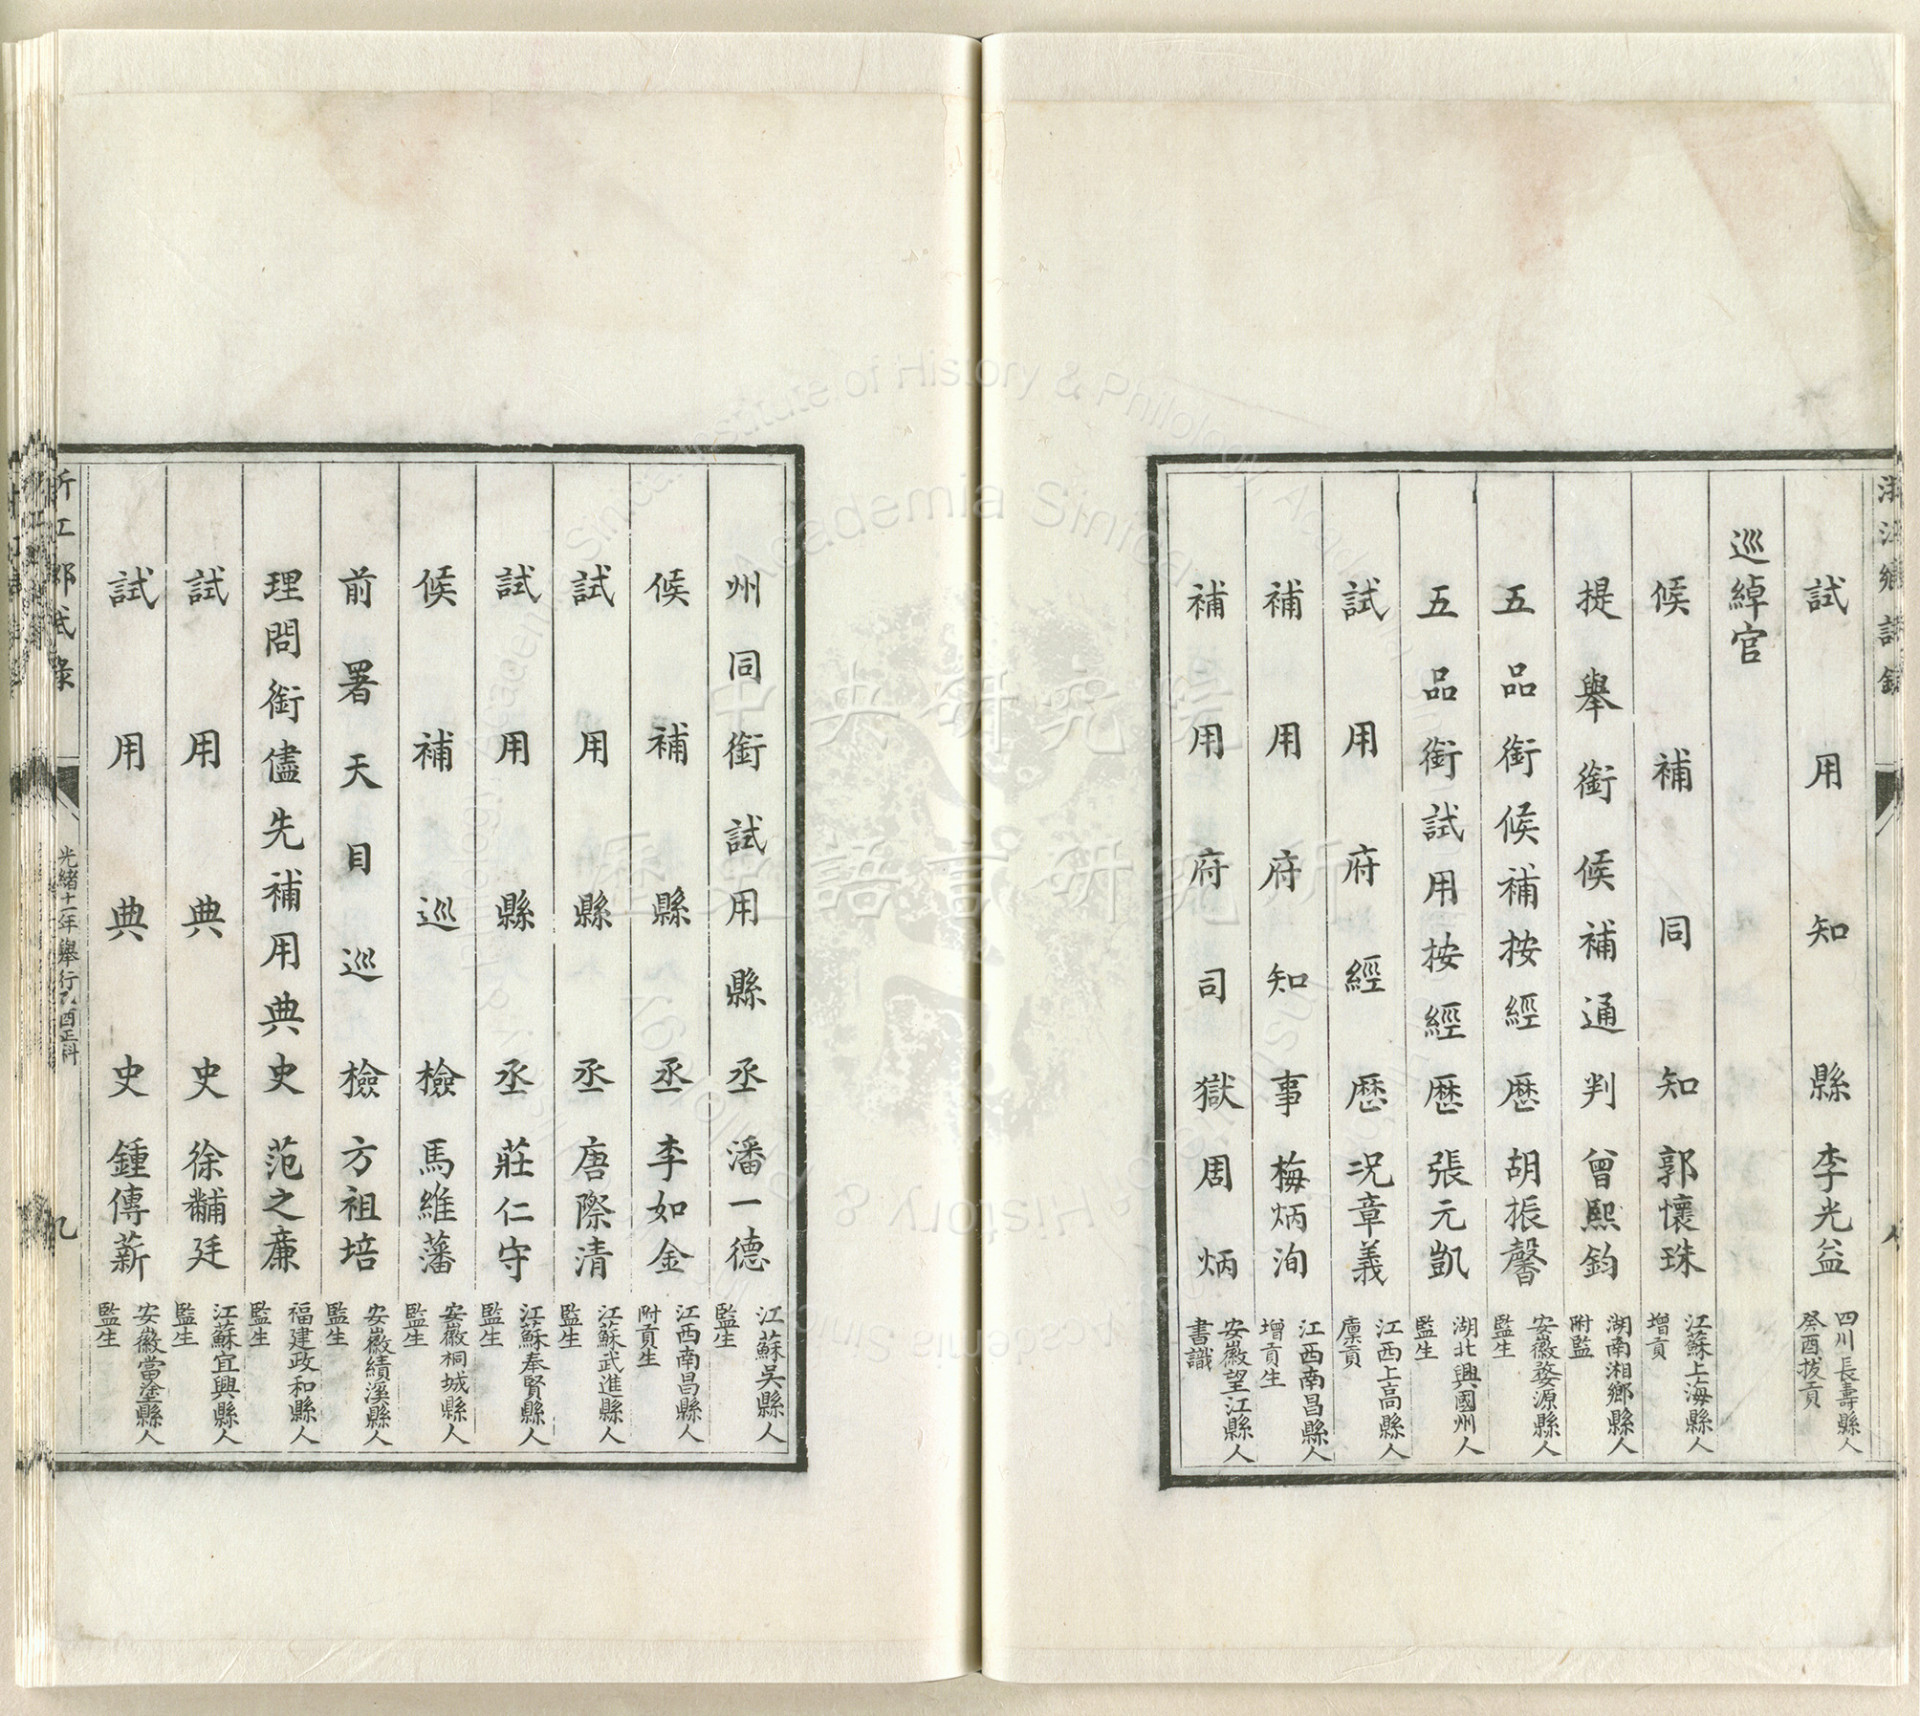 試用知縣李光益 四川長壽縣人 癸酉拔貢
巡綽官
候補同知郭懷珠 江蘇上海縣人 增貢
提舉銜候補通判曾熙鈞 湖南湘鄉縣人 附監
五品銜候補按經歷胡振馨 安徽婺源縣人 監生
五品銜試用按經歷張元凱 湖北興國州人 監生
試用府經歷況章義 江西上高縣人 廩貢
補用府知事梅炳洵 江西南昌縣人 增貢生
補用府司獄周炳 安徽望江縣人 書識
州同銜試用縣丞潘一德 江蘇吳縣人 監生
候補縣丞李如金 江西南昌縣人 附貢生
試用縣丞唐際清 江蘇武進縣人 監生
試用縣丞莊仁守 江蘇奉賢縣人 監生
候補巡檢馬維藩 安徽桐城縣人 監生
前署天目巡檢方祖培 安徽績溪縣人 監生
理問銜儘先補用典史范之廉 福建政和縣人 監生
試用典史徐黼廷 江蘇宜興縣人 監生
試用典史鍾傳薪 安徽當塗縣人 監生
光緒十一年舉行乙酉正科
九
中央研究院
歷史語言研究所
Institute of History & Philology Academia Sinica